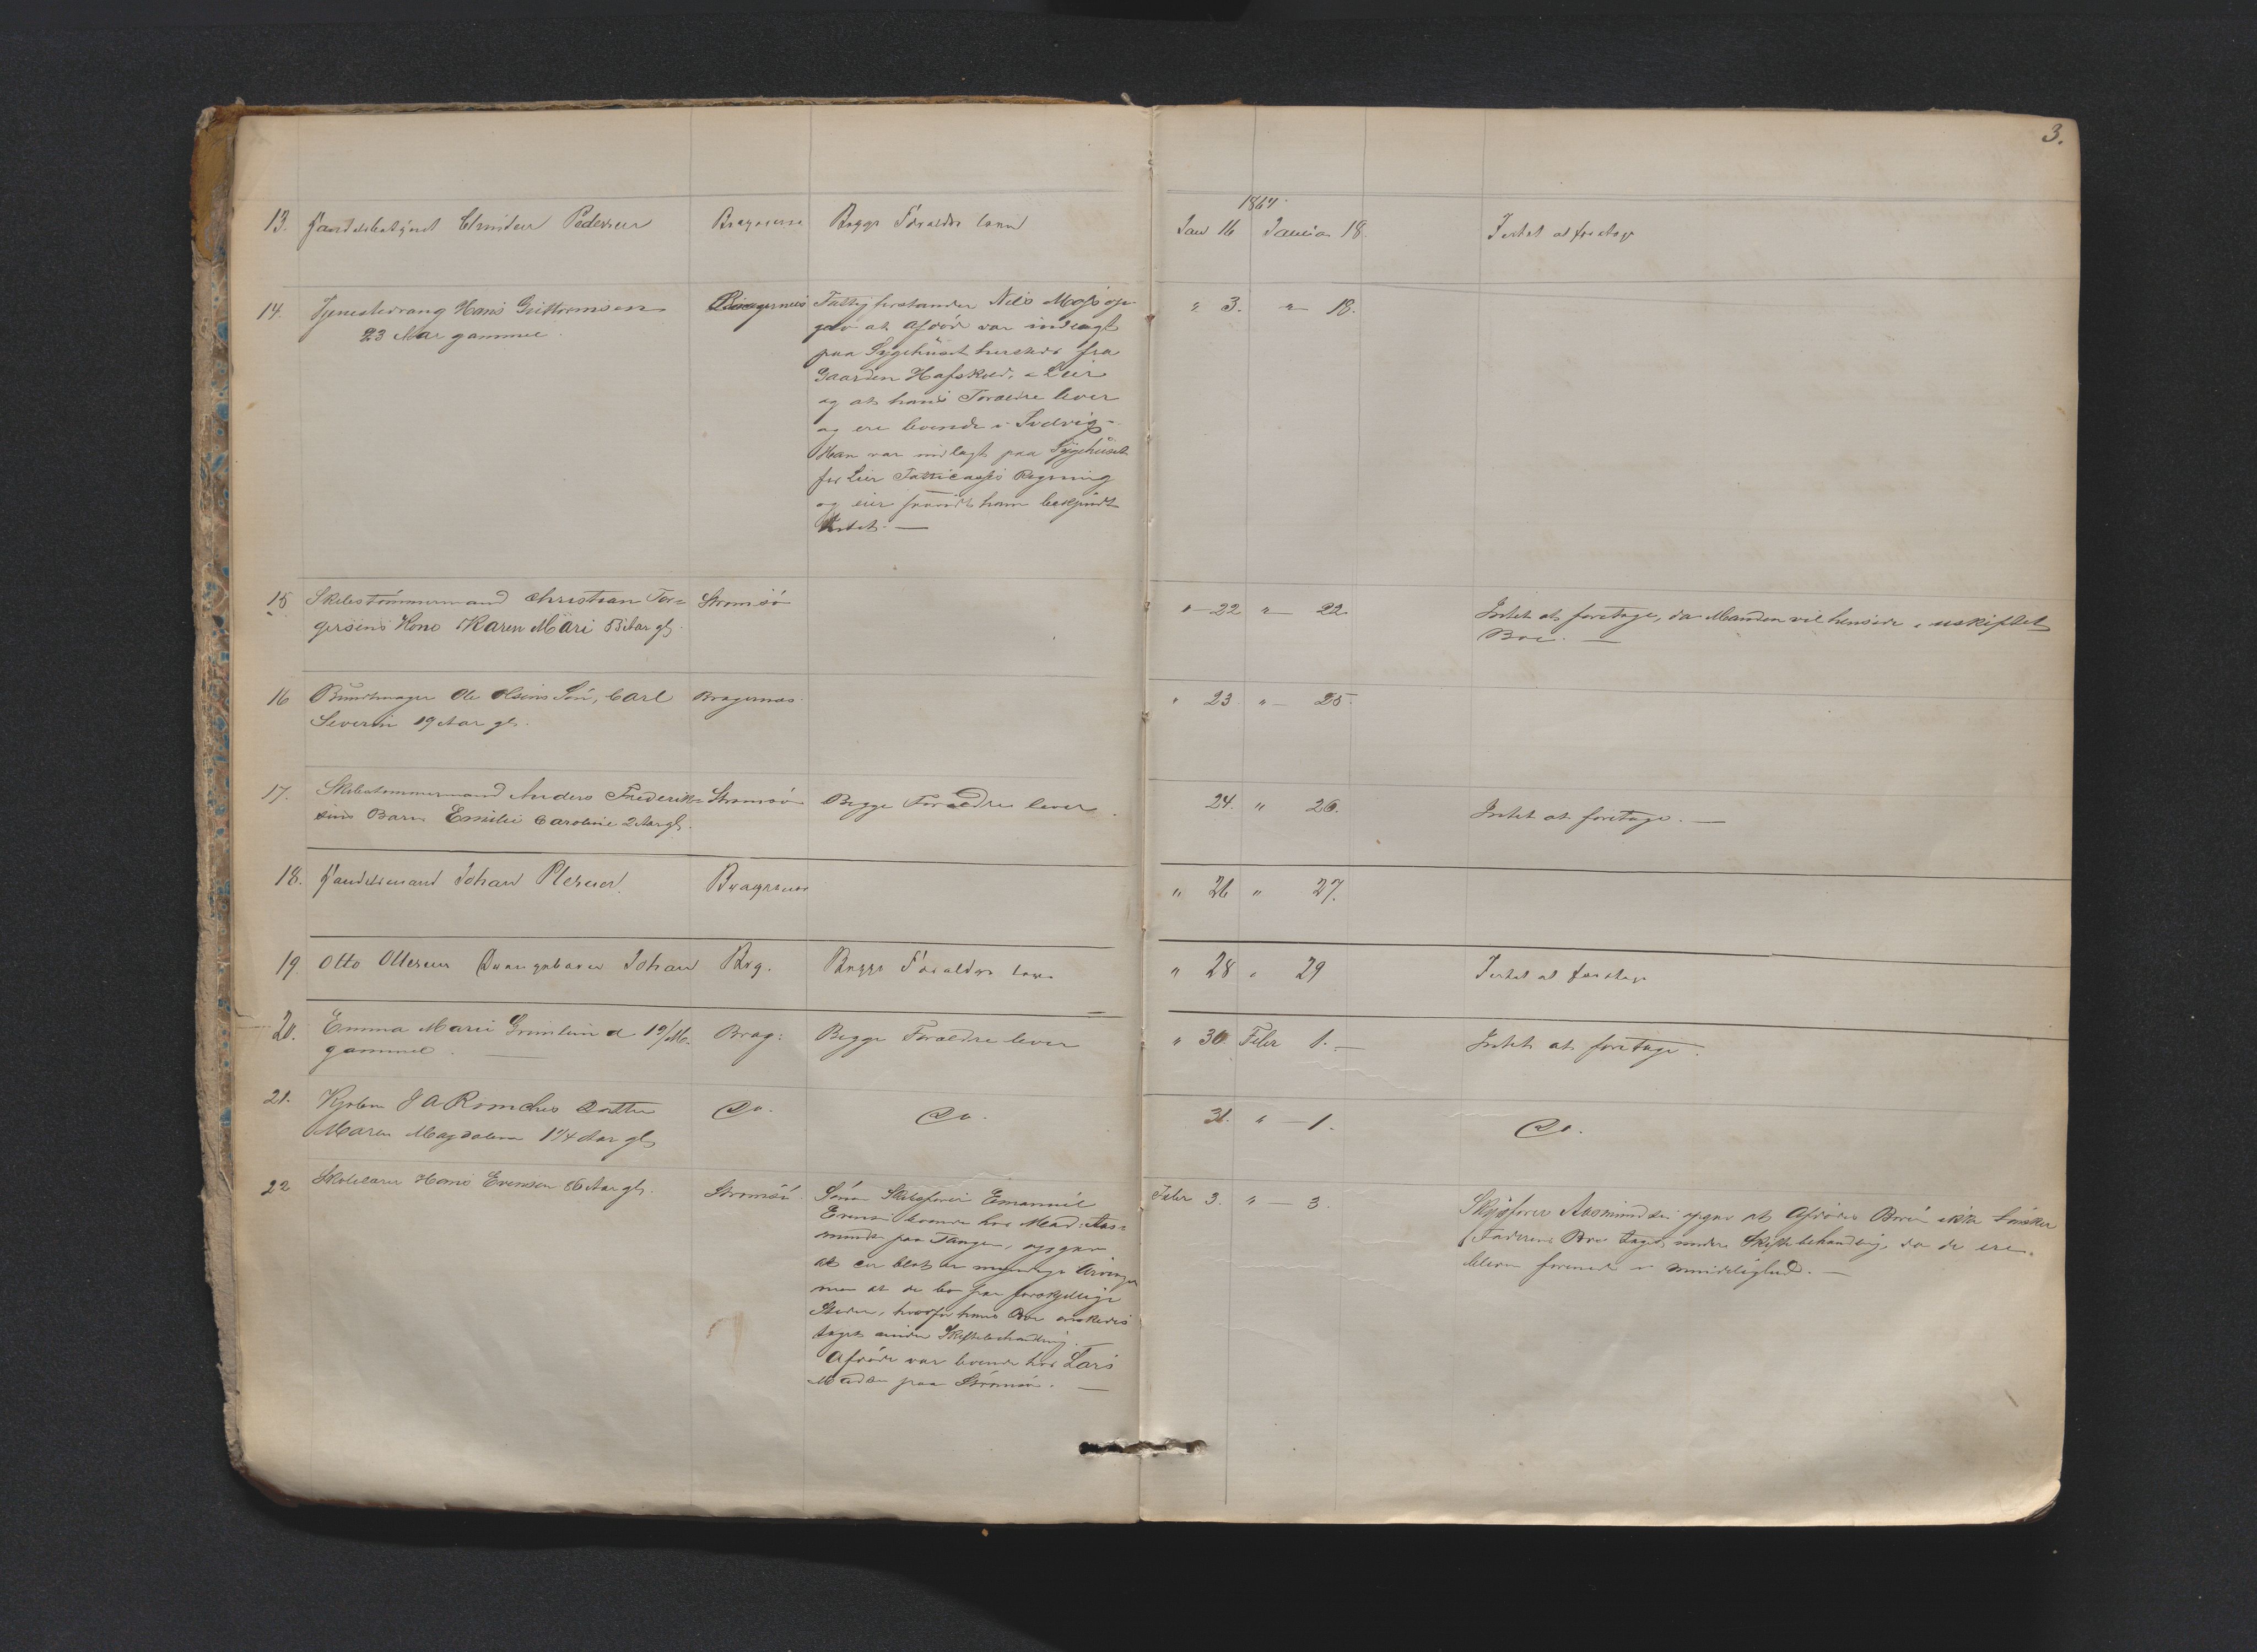 3.
1867.
13. Handelsbetjent Pedersen Bragernes Begge Forældre lever Jan 16 Januar 18. Intet at foretage
14. Tjenestedreng Hans Guttormsen Bragernes Fattigforstander Nils Moss op- " 3. " 18.
23 Aar gammel.
gav at Afdøde var indlagt
paa Sygehuset hersteds fra
Gaarden Hafskold, i Lier
og at hans Forældre lever
og ere boende i Svelvig.
Han var indlagt paa Sygehuset
for Lier Fatticasses Regning
og eier saavidt ham bekjendt
Intet. —
15 Skibstømmermand Christian Tor= Strømsø " 22 " 22. Intet at foretage, da Manden vil hensidde i uskiftet
gersens Kone Karen Mari 53 Aar gl. Boe. —
16 Bundtmager Ole Olsens Søn, Carl Bragernæs. " 23. " 25.
Severin 19 Aar gl.
17. Skibstømmermand Anders Frederik= Strømsø Begge Forældre lever. 24. " 26. Intet at foretage. —
sens Barn Emilie Caroline 2 Aar gl.
18. Handelsmand Johan Bragernes " 26 " 27.
19. Otto Ottesen Johan Brg. Begge Forældre lever " 28 " 29 Intet at foretage
20. Emma Marie 19/M. Brag: Begge Forældre lever " 30 Febr 1. — Intet at foretage.
gammel. —
21. J A Datter Do. Do. 31. " 1. Do.
Maren Magdalena 1 1/4 Aar gl.
22 Skolelærer Hans Evensen 86 Aar gl. Strømsø. Sønn Skibsfører Emanuel Febr 3. " 3. Skibsfører Aasmundsen opgav at Afdødes Børn ikke ønsker
Evensen boende hos Mad: Aas=
mundsen paa Tangen, opgav
at der blot er myndige Arvinger
men at de bo paa forskjellige
Steder, hvorfor hans Boe ønskedes
taget under Skiftebehandling.
Afdøde var boende hos Lars
Madsen paa Strømsø. —
Faderens Boe taget under Skiftebehandling, da de ere
bleven forenede i Mindelighed. —